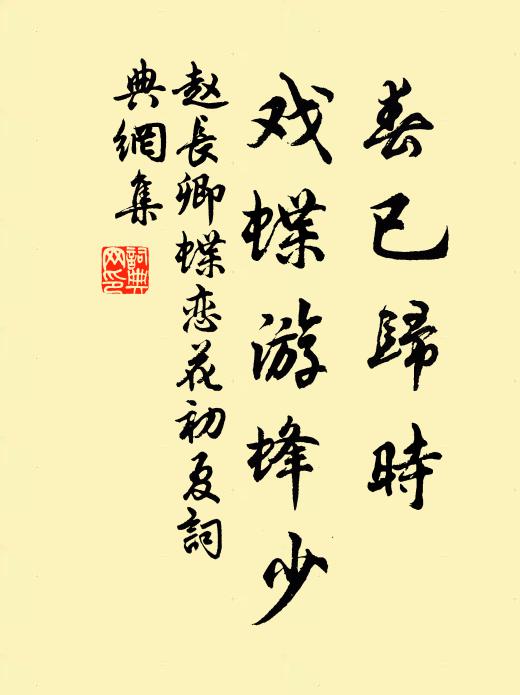 春已歸時
戏蝶游蜂少
赵長卿蝶恋花初夏詞
典網集
詞典
网印